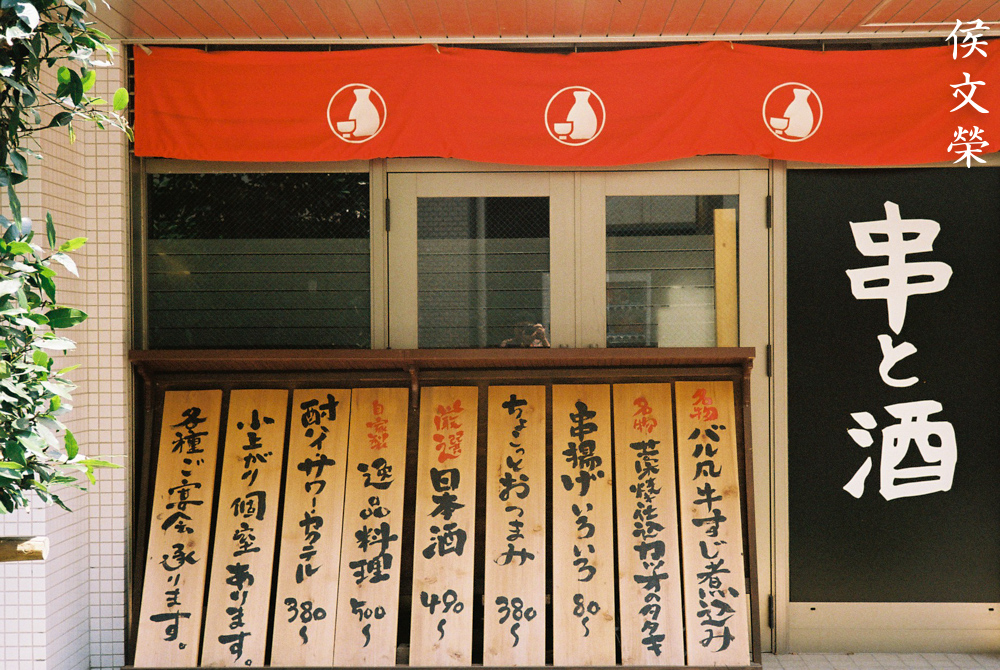 侯文榮
串と酒
名物 バル丸 牛すじ煮込み
名物 藁焼き仕込 カツオのタタキ
串揚げいろいろ 80〜
ちょこっとおつまみ 380〜
厳選 日本酒 490〜
自家製 逸品料理 500〜
酎ハイ・サワー・カクテル 380〜
小上がり個室あります。
各種ご宴会承ります。